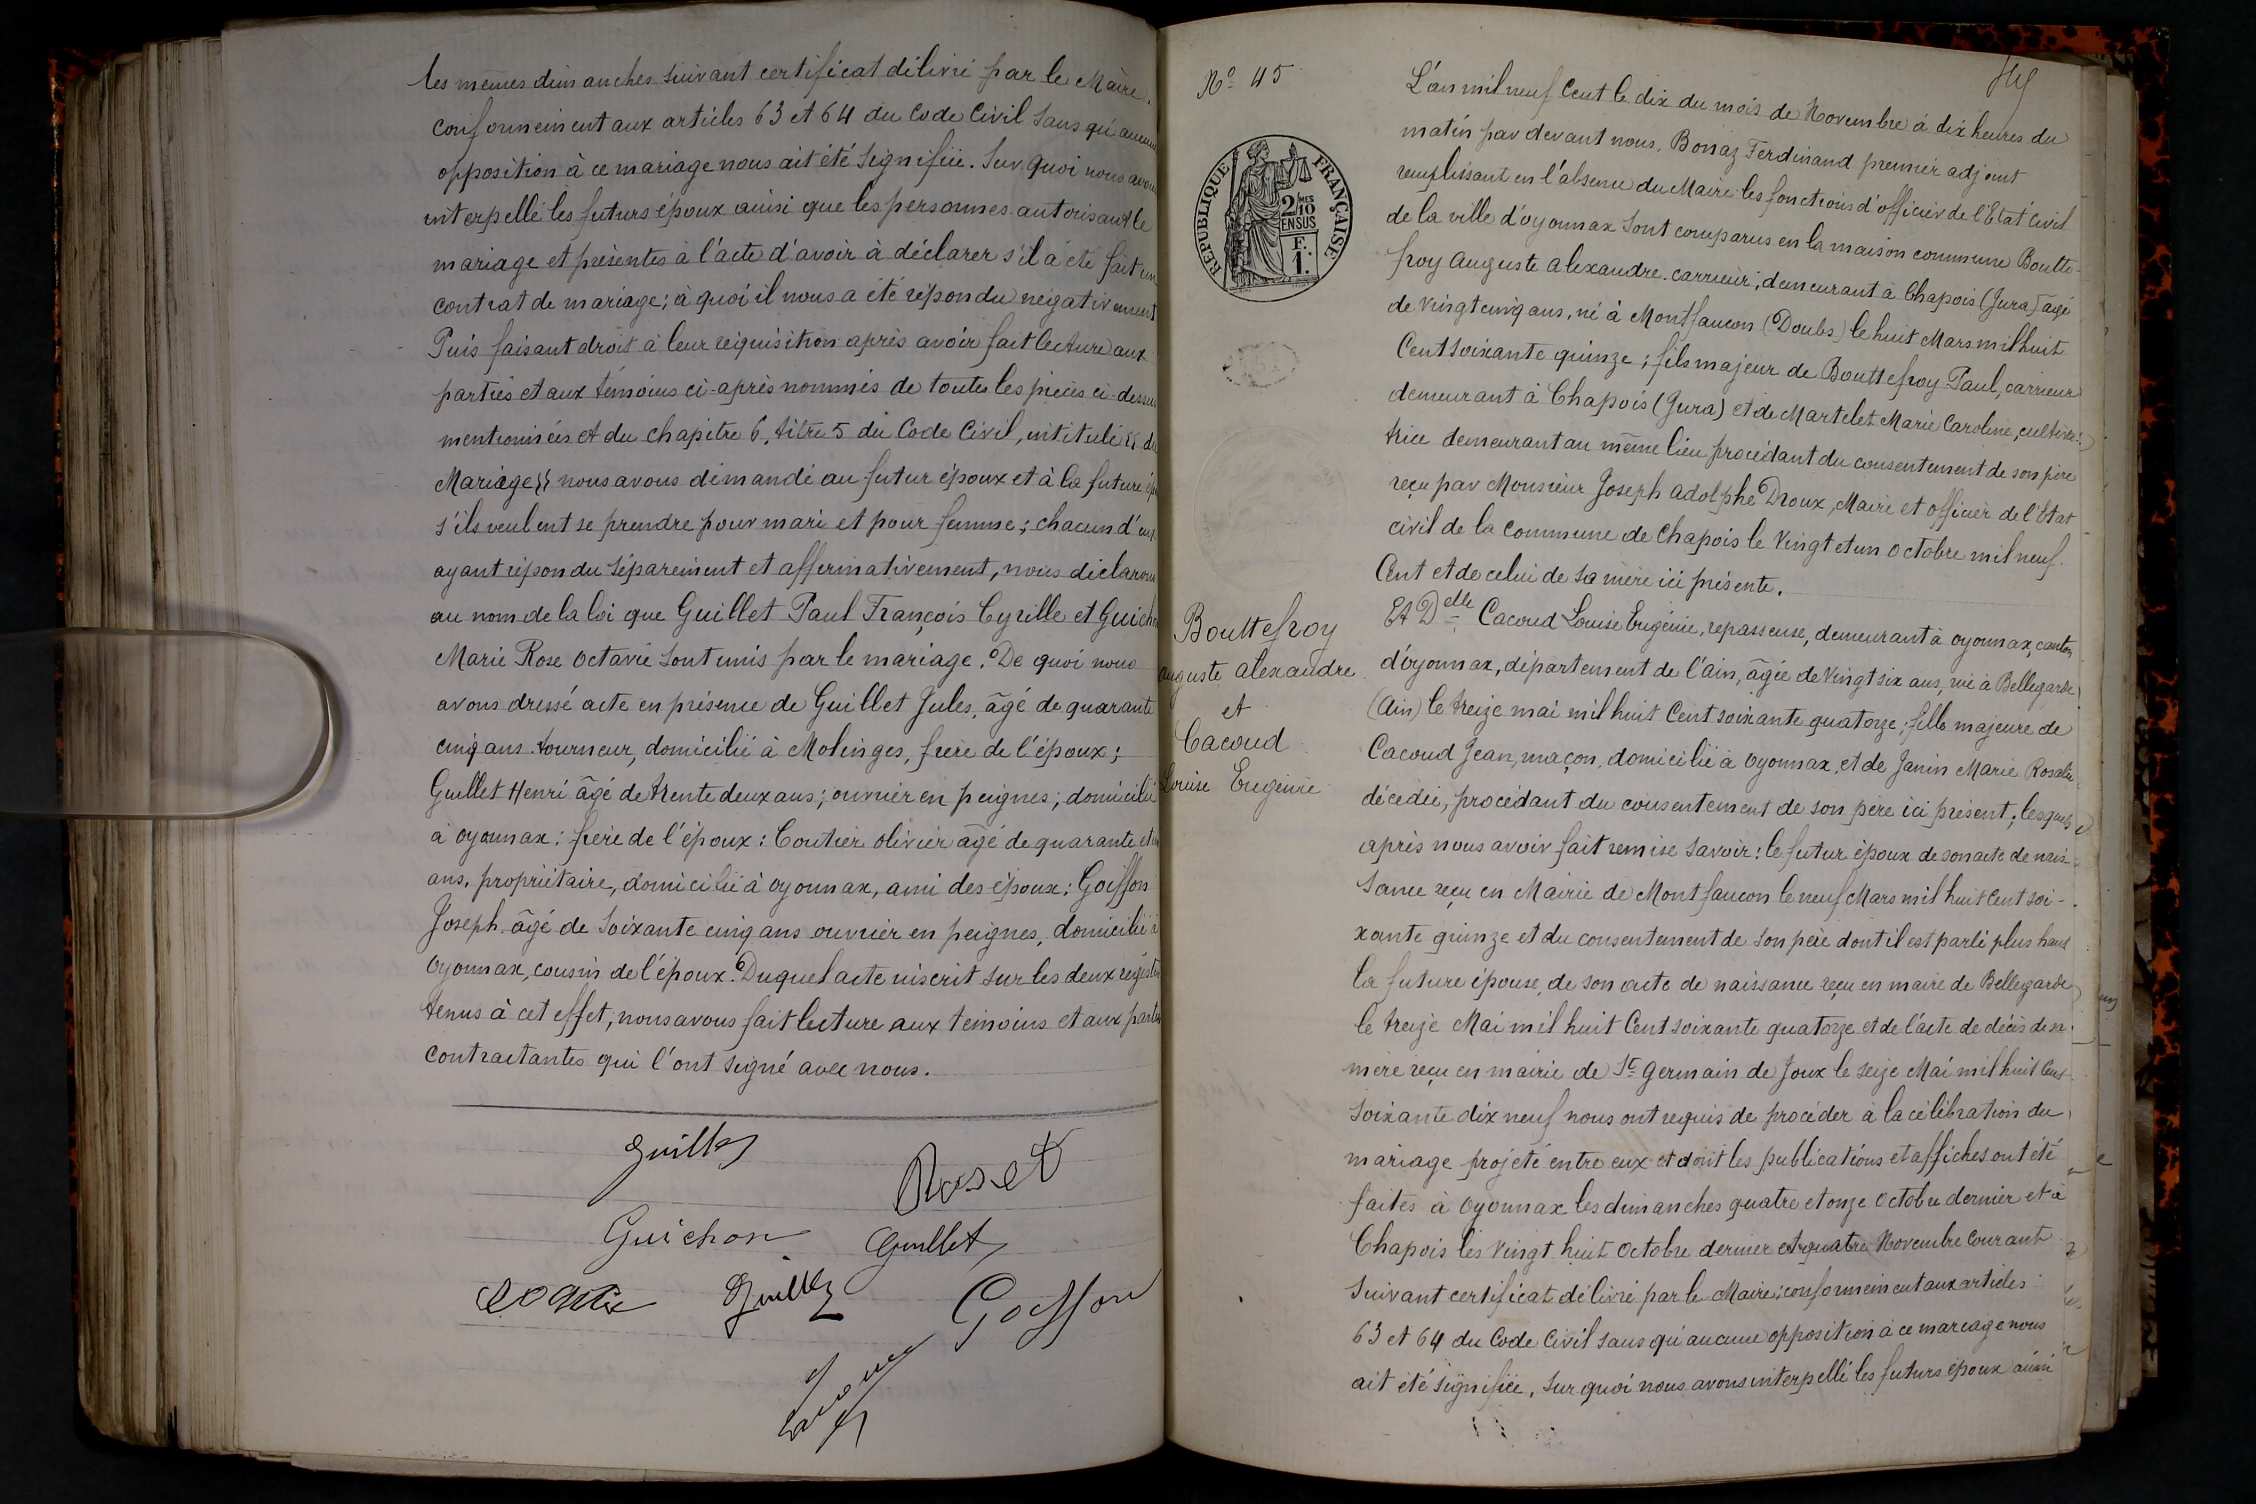 les mêmes dimanches suivant certificat délivré par le Maire.
conformement aux articles 63 et 64 du Code Civil sans qu'aucune
opposition à ce mariage nous ait été signifiée. Sur quoi nous avons
interpellé les futurs époux ainsi que les personnes autorisant le
mariage et présentes à l'acte d'avoir à déclarer s'il a été fait un
contrat de mariage; à quoi il nous a été répondu négativement
Puis faisant droit à leur réquisition après avoir fait lecture aux
parties et aux témoins ci-après nommés de toutes les pièces ci-dessus
mentionnées et du chapitre 6, titre 5 du Code Civil, intitulé {{ du
Mariage}} nous avons demandé au futur époux et à la future
s'ils veulent se prendre pour mari et pour femme; chacun d'eux
ayant répondu séparément et affirmativement, nous déclarons
au nom de la loi que Guillet Paul François Cyrille et Guichon
Marie Rose Octavie sont unis par le mariage. De quoi nous
avons dressé acte en présence de Guillet Jules, âgé de quarante
cinq ans tourneur, domicilié à Molinges, frère de l'époux;
Guillet Henri âgé de trente deux ans; ouvrier en peignes; domicilié
à oyonnax: frère de l'époux: Coutier olivier âgé de quarante et un
ans, propriétaire, domicilié à oyonnax, ami des époux: Goiffon
Joseph âgé de soixante cinq ans ouvrier en peignes, domicilié à
Oyonnax, cousin de l'époux. Duquel acte inscrit sur les deux registres
tenus à cet effet, nous avons fait lecture aux témoins et aux parties
contractantes qui l'ont signé avec nous.
Guillet
Roset
Guichon
Guillet
Guillet
Goiffon
No 45
RÉPUBLIQUE FRANÇAISE
2/10
EN SUS
F.
1.
Bouttefroy
auguste alexandre
et
Cacoud
Louise Eugénie
L'an mil neuf Cent le dix du mois de Novembre à dix heures du
matin par devant nous, Bonaz Ferdinand premier adjoint
remplissant en l'absence du Maire les fonctions d'officier de l'Etat civil
de la ville d'oyonnax sont comparus en la maison commune Boutte-
froy auguste alexandre carrieur; demeurant à Chapois (Jura) âgé
de vingt cinq ans, né à Montfaucon (Doubs) le huit Mars mil huit
Cent soixante quinze; fils majeur de Bouttefroy Paul, carrieur
demeurant à Chapois (Jura) et de Martelet Marie Caroline, cultiva-
trice demeurant au même lieu procédant du consentement de son père
reçu par Monsieur Joseph adolphe Droux, Maire et officier de l'Etat
civil de la commune de Chapois le vingt et un octobre mil neuf
Cent et de celui de sa mère ici présente.
Et Delle Cacoud Louise Eugénie, repasseuse, demeurant à oyonnax, canton
d'oyonnax, département de l'ain, âgée de vingt six ans, née à Bellegarde
(Ain) le treize mai mil huit Cent soixante quatorze; fille majeure de
Cacoud Jean, maçon, domicilié à oyonnax, et de Janin Marie Rosalie
décédée, procédant du consentement de son père ici présent; lesquels
après nous avoir fait remise savoir: le futur époux de son acte de nais-
sance reçu en Mairie de Montfaucon le neuf Mars mil huit cent soi-
xante quinze et du consentement de son père dont il est parlé plus haut
la future épouse, de son acte de naissance reçu en maire de Bellegarde
le treize Mai mil huit Cent soixante quatorze et de l'acte de décès de sa
mère reçu en mairie de St Germain de Joux le seize Mai mil huit Cent
soixante dix neuf nous ont requis de procéder à la célébration du
mariage projeté entre eux et dont les publications et affiches ont été
faites à Oyonnax les dimanches quatre et onze Octobre dernier et à
Chapois les vingt huit octobre dernier et quatre Novembre courant
suivant certificat délivré par le Maire; conformement aux articles
63 et 64 du Code Civil sans qu'aucune opposition à ce mariage nous
ait été signifiée, sur quoi nous avons interpellé les futurs époux ainsi